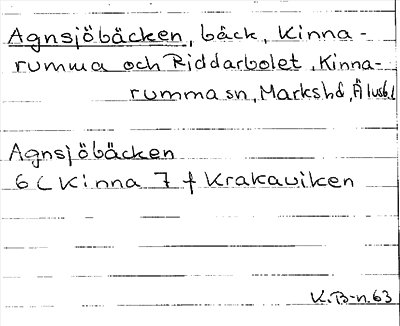 Agnsjöbäcken, bäck, Kinna-
rumma och Riddarbolet, Kinna-
rumma sn, Markshd, Älvsb.l
Agnsjöbäcken
6 C Kinna 7 f Krakaviken
K.B-n.63